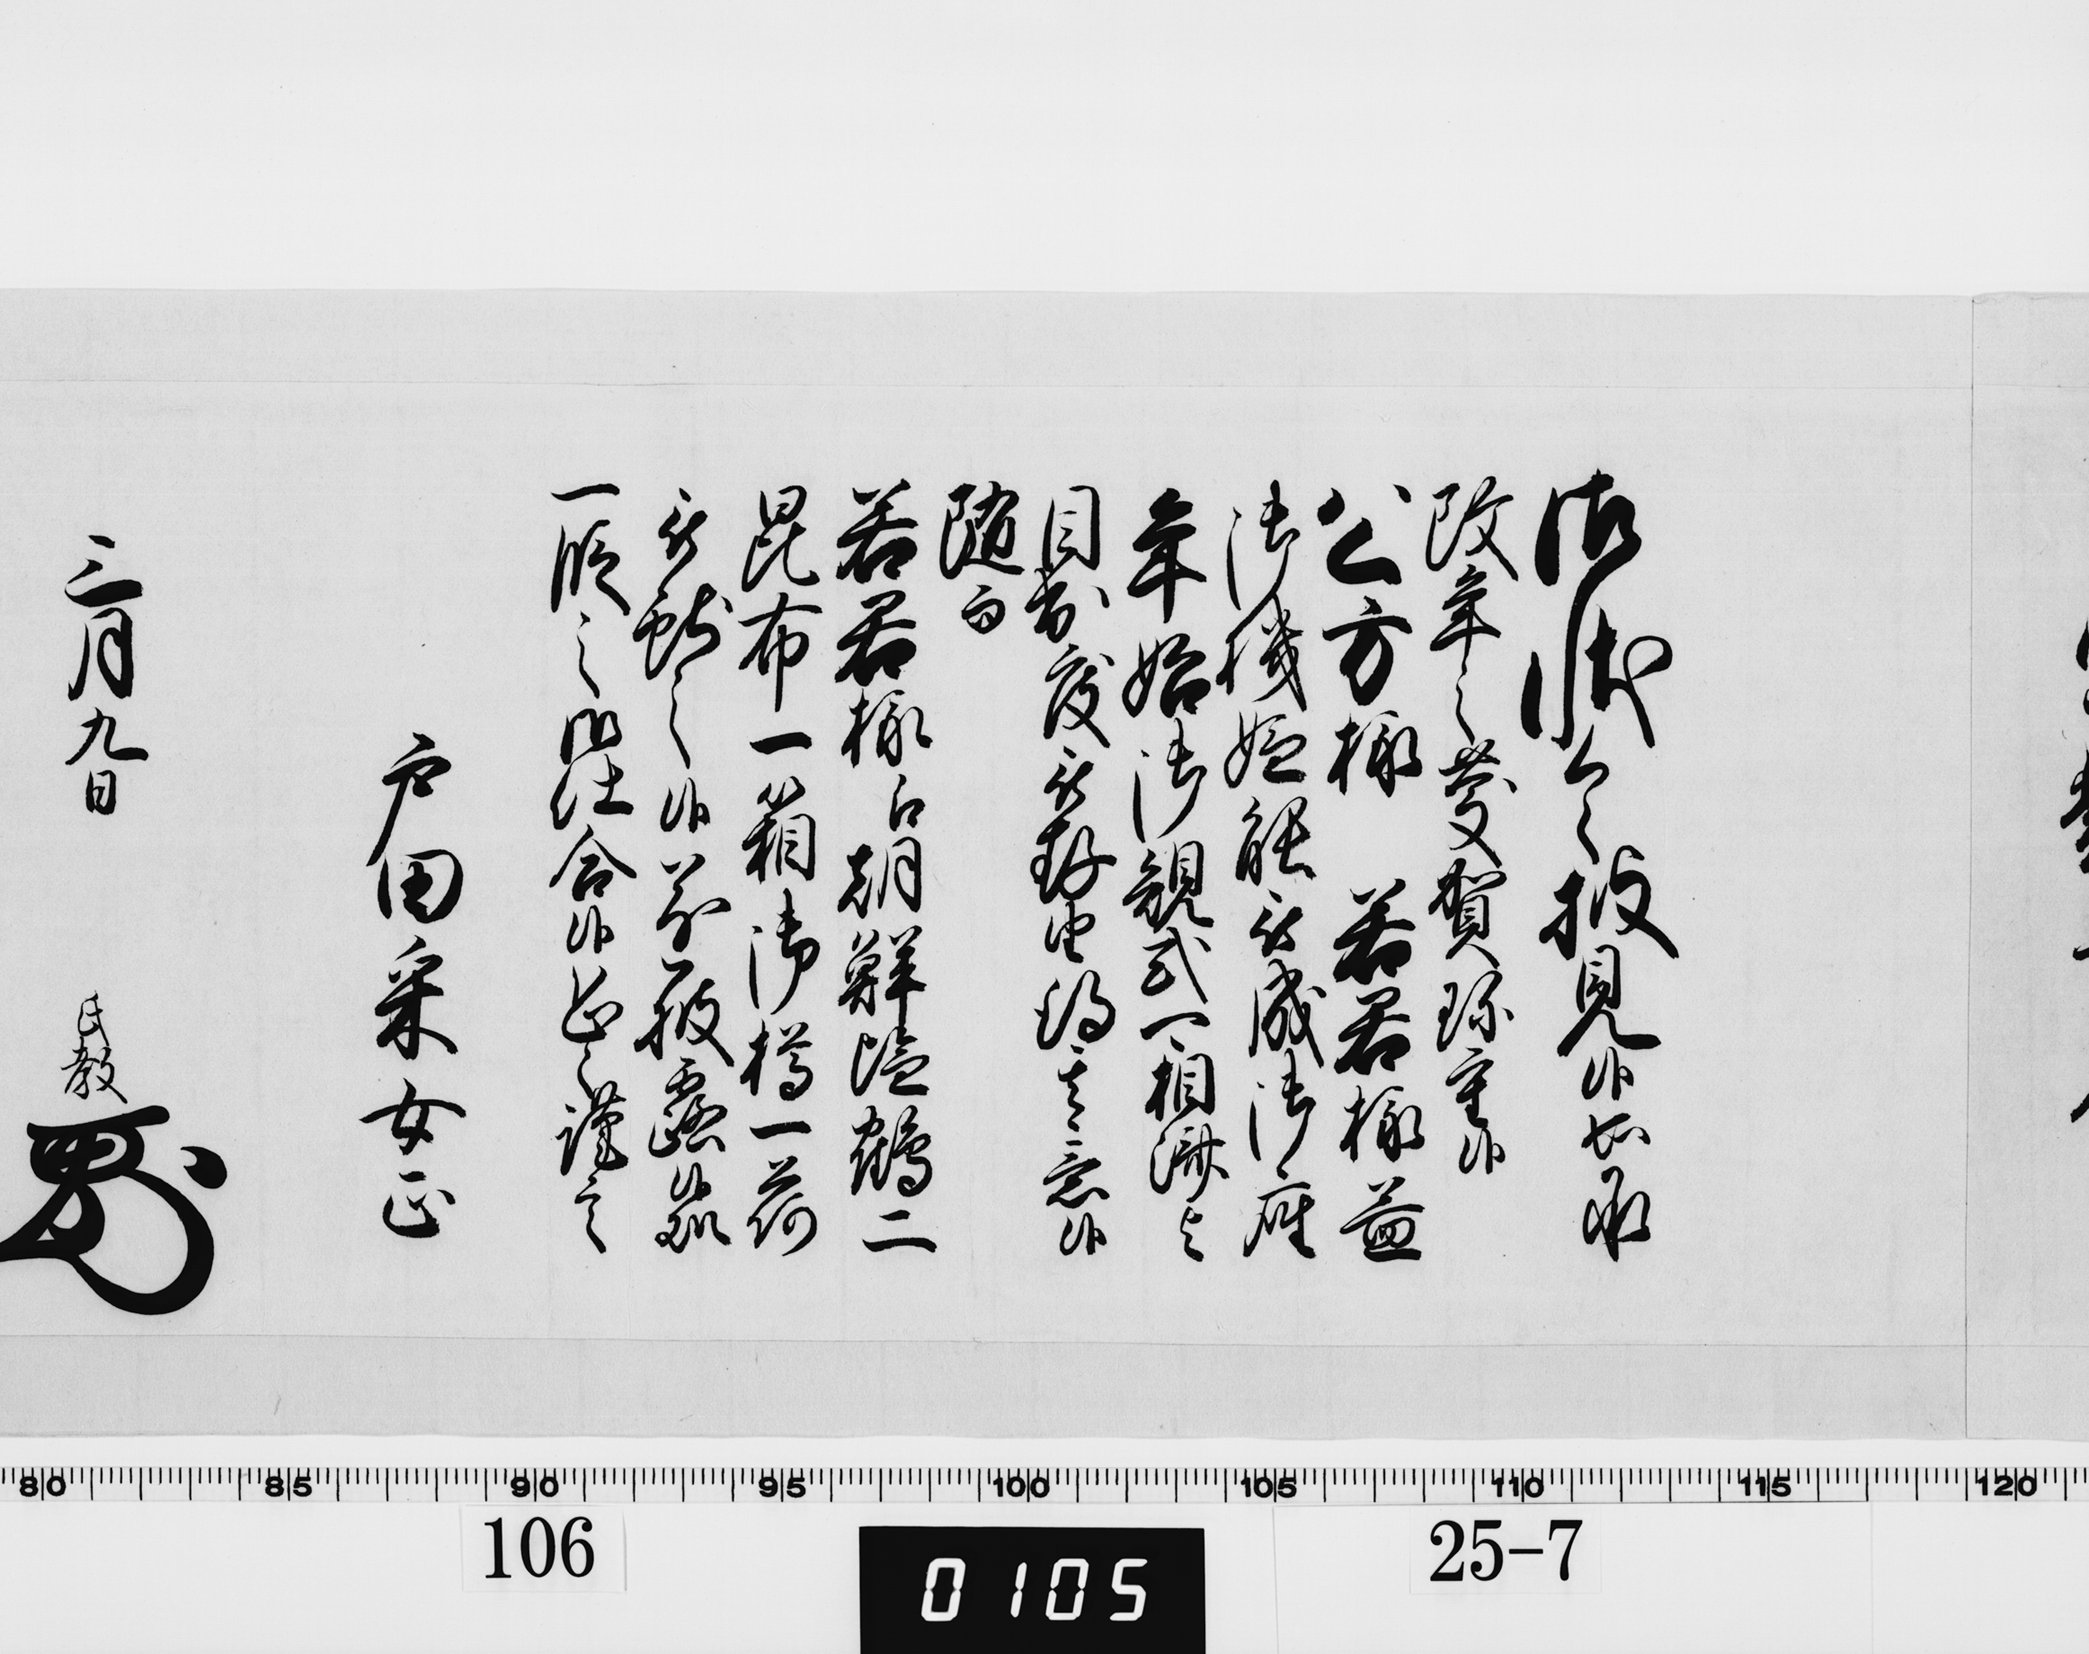 御状令披見候如承
改年之慶賀珍重候
公方様 若君様益
御機嫌能被成御座
年始御規式一相済之
目出度被存由得其意候
随而
若君様江朝鮮塩鶴二
昆布一箱御樽一荷
被献之候首尾披露候
一段之御仕合候恐々謹言
戸田采女正
三月九日
氏教
80 85 90 95 100 105 110 115 120
106
0105
25-7